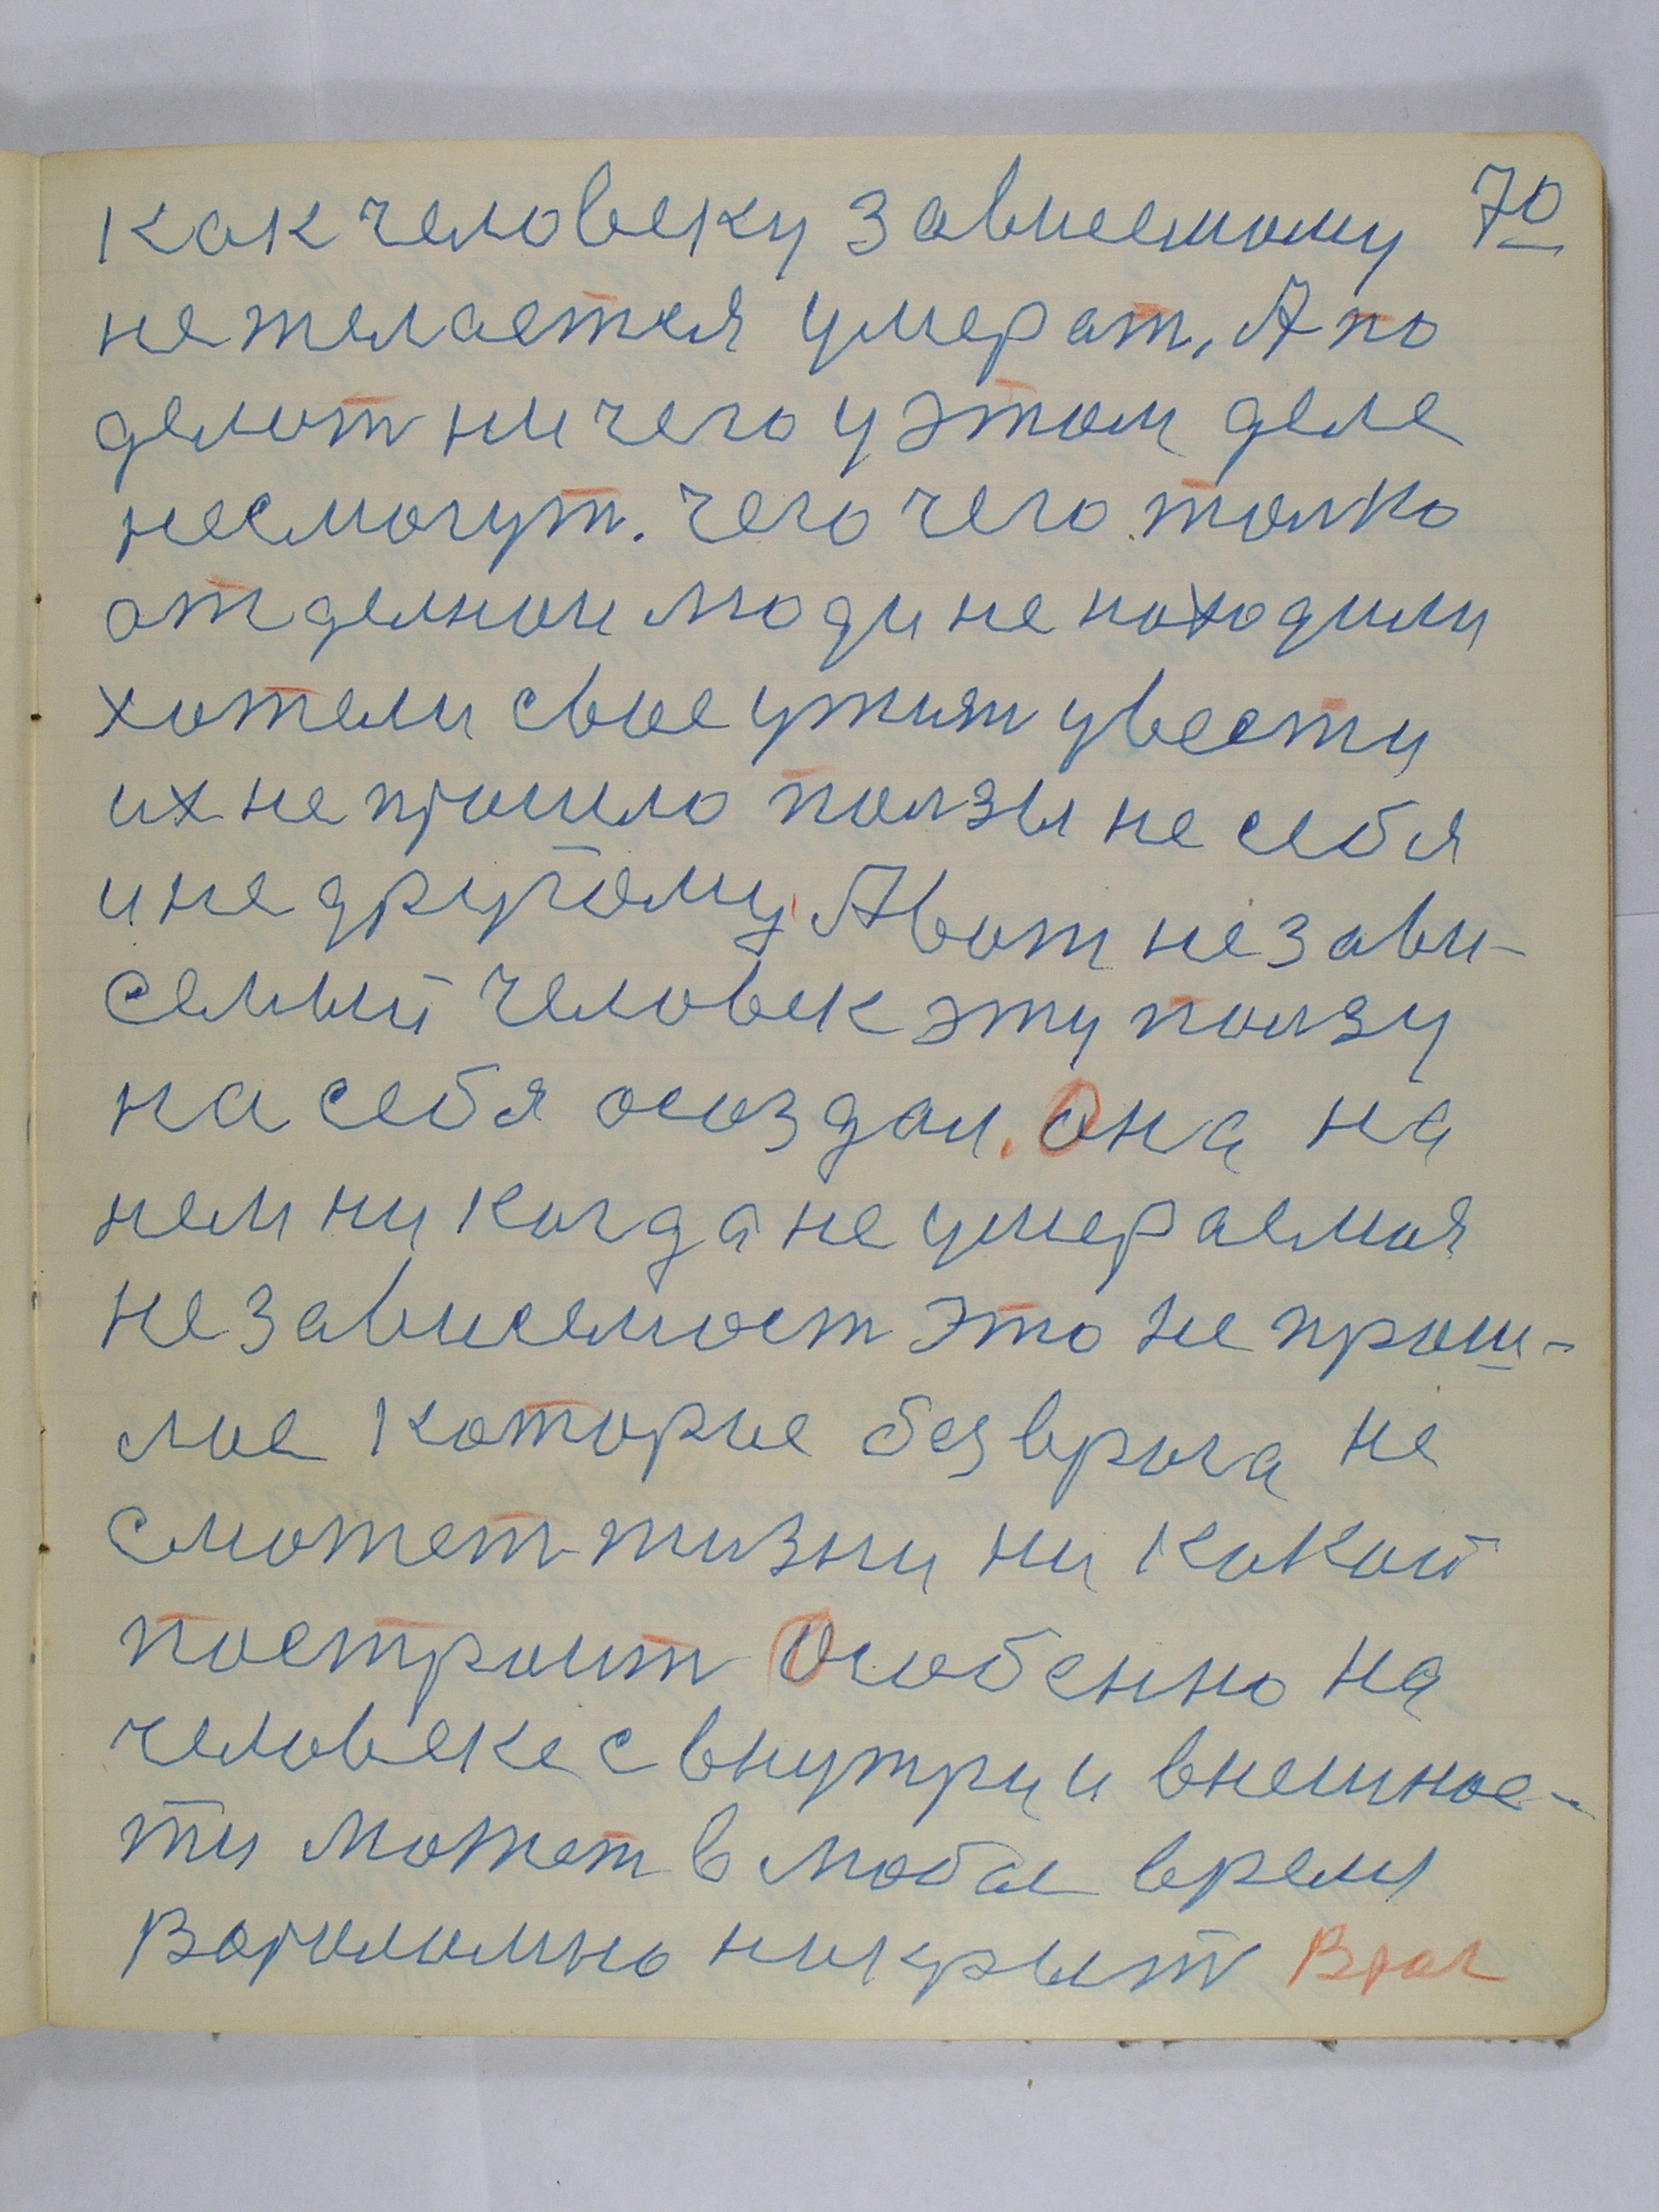 как человеку зависемому 70
не желается умерат, А по
делат ничего у этом деле
несмогут. чего чего толко
отделнои люди не находили
хотели свое ужиат увести
их не пришло ползы не себя
и не другому. А вот незави-
семый человек эту ползу
на себя осоздал. Она на
нем ни когда не умераемая
независемост это не прош-
лое которые без врага не
сможет жизни ни какой
построит Особенно на
человеке с внутри и внешнос-
ти может в любое время
накрыт Враг